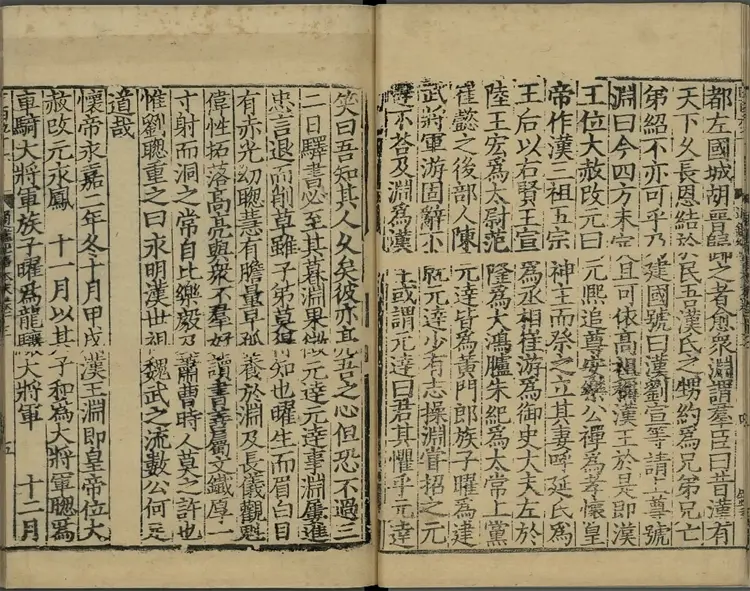 都左國城胡晉歸之者愈衆淵謂羣臣曰昔漢有
天下久長恩結於民吾漢氏之甥約爲兄弟兄亡
弟紹不亦可乎乃建國號曰漢劉宣等請上尊號
淵曰今四方未定且可依高祖稱漢王於是即漢
王位大赦改元曰元熙追尊安樂公禪爲孝懷皇
帝作漢三祖五宗神主而祭之立其妻呼延氏爲
王后以右賢王宣爲丞相崔游爲御史大夫左於
陸王宏爲太尉范隆爲大鴻臚朱紀爲太常上黨
崔懿之後部人陳元達皆爲黃門郎族子曜爲建
武將軍游固辭不就元達少有志操淵嘗招之元
達不荅及淵爲漢王或謂元達曰君其懼乎元達
笑曰吾知其人久矣彼亦亮吾之心但恐不過三
二日驛書必至其暮淵果徵元達元達事淵屢進
忠言退而削草雖子弟莫得知也曜生而眉白目
有赤光幼聰慧有膽量早孤養於淵及長儀觀魁
偉性拓落高亮與衆不羣好讀書善屬文鐵厚一
寸射而洞之常自比樂毅及蕭曹時人莫之許也
惟劉聰重之曰永明漢世祖魏武之流數公何足
道哉
懷帝永嘉二年冬十月甲戌漢王淵即皇帝位大
赦改元永鳳　十一月以其子和爲大將軍聰爲
車騎大將軍族子曜爲龍驤大將軍　十二月